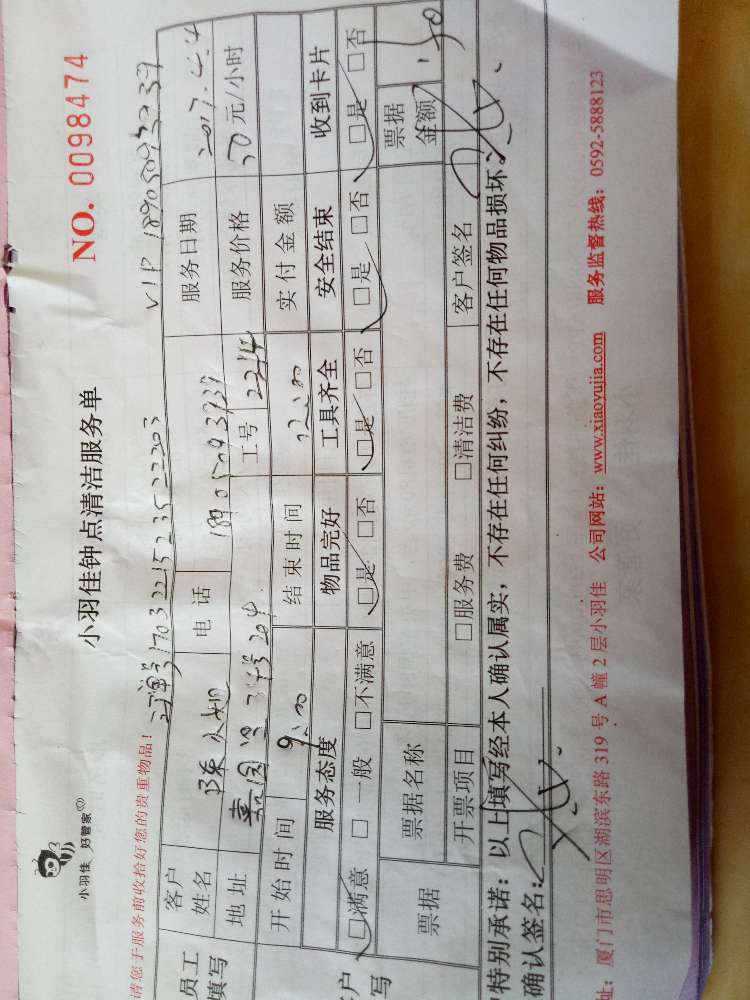 小羽佳 好管家
小羽佳钟点清洁服务单
NO. 0098474
请您于服务前收拾好您的贵重物品!
VIP
员工
填写
客户
姓名
陈
电话
服务日期
2017.4.4
地址
204
服务价格
30元/小时
工号
2214
开始时间
9:00
结束时间
12:00
实付金额
服务态度
物品完好
工具齐全
安全结束
收到卡片
☑满意 □一般 □不满意
☑是 □否
☑是 □否
☑是 □否
☑是 □否
票据
票据名称
票据
金额
开票项目
□服务费
□清洁费
客户签名
特别承诺:以上填写经本人确认属实,不存在任何纠纷,不存在任何物品损坏。
确认签名:
址:厦门市思明区湖滨东路 319 号 A 幢 2 层小羽佳 公司网站:www.xiaoyujia.com 服务监督热线:0592-5888123